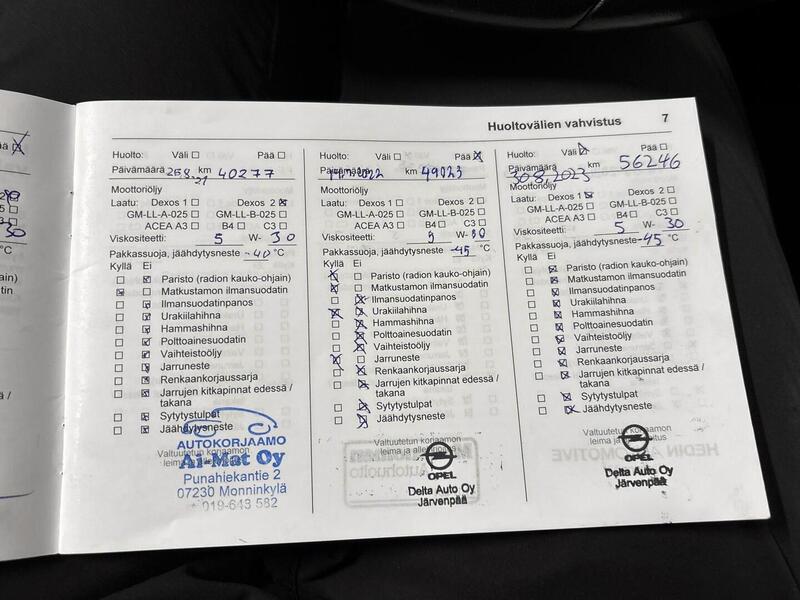 Huoltovälien vahvistus 7
Huolto: Väli Pää
Päivämäärä 25.8.21 km 40277
Moottoriöljy
Laatu: Dexos 1 Dexos 2
GM-LL-A-025 GM-LL-B-025
ACEA A3 B4 C3
Viskositeetti: 5 W- 30
Pakkassuoja, jäähdytysneste -40 °C
Kyllä Ei
Paristo (radion kauko-ohjain)
Matkustamon ilmansuodatin
Ilmansuodatinpanos
Urakiilahihna
Hammashihna
Polttoainesuodatin
Vaihteistoöljy
Jarruneste
Renkaankorjaussarja
Jarrujen kitkapinnat edessä /
takana
Sytytystulpat
Jäähdytysneste
Valtuutetun korjaamon
AUTOKORJAAMO
Ai-Mat Oy
Punahiekantie 2
07230 Monninkylä
019-643 582
Huolto: Väli Pää
Päivämäärä 2022 km 49023
Moottoriöljy
Laatu: Dexos 1 Dexos 2
GM-LL-A-025 GM-LL-B-025
ACEA A3 B4 C3
Viskositeetti: W-
Pakkassuoja, jäähdytysneste -45 °C
Kyllä Ei
Paristo (radion kauko-ohjain)
Matkustamon ilmansuodatin
Ilmansuodatinpanos
Urakiilahihna
Hammashihna
Polttoainesuodatin
Vaihteistoöljy
Jarruneste
Renkaankorjaussarja
Jarrujen kitkapinnat edessä /
takana
Sytytystulpat
Jäähdytysneste
Valtuutetun korjaamon
leima ja
OPEL
Delta Auto Oy
Järvenpää
Huolto: Väli Pää
Päivämäärä 30.8.2023 km 56246
Moottoriöljy
Laatu: Dexos 1 Dexos 2
GM-LL-A-025 GM-LL-B-025
ACEA A3 B4 C3
Viskositeetti: 5 W- 30
Pakkassuoja, jäähdytysneste -45 °C
Kyllä Ei
Paristo (radion kauko-ohjain)
Matkustamon ilmansuodatin
Ilmansuodatinpanos
Urakiilahihna
Hammashihna
Polttoainesuodatin
Vaihteistoöljy
Jarruneste
Renkaankorjaussarja
Jarrujen kitkapinnat edessä /
takana
Sytytystulpat
Jäähdytysneste
Valtuutetun korjaamon
leima ja
OPEL
Delta Auto Oy
Järvenpää